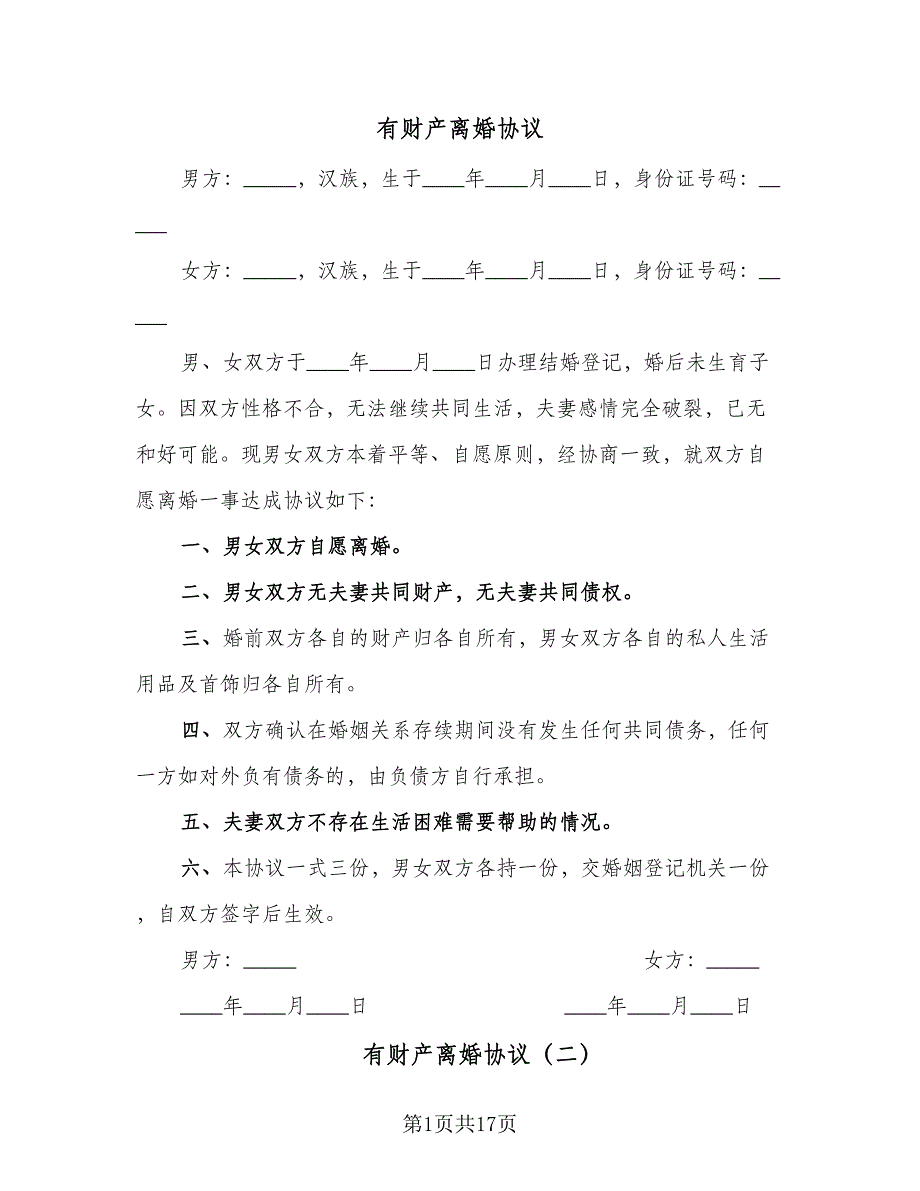 有财产离婚协议
男方：_____，汉族，生于____年____月____日，身份证号码：__
___
女方：_____，汉族，生于____年____月____日，身份证号码：__
___
男、女双方于____年____月____日办理结婚登记，婚后未生育子
女。因双方性格不合，无法继续共同生活，夫妻感情完全破裂，已无
和好可能。现男女双方本着平等、自愿原则，经协商一致，就双方自
愿离婚一事达成协议如下：
一、男女双方自愿离婚。
二、男女双方无夫妻共同财产，无夫妻共同债权。
三、婚前双方各自的财产归各自所有，男女双方各自的私人生活
用品及首饰归各自所有。
四、双方确认在婚姻关系存续期间没有发生任何共同债务，任何
一方如对外负有债务的，由负债方自行承担。
五、夫妻双方不存在生活困难需要帮助的情况。
六、本协议一式三份，男女双方各持一份，交婚姻登记机关一份
，自双方签字后生效。
男方：_____ 女方：_____
____年____月____日 ____年____月____日
有财产离婚协议（二）
第1页共17页